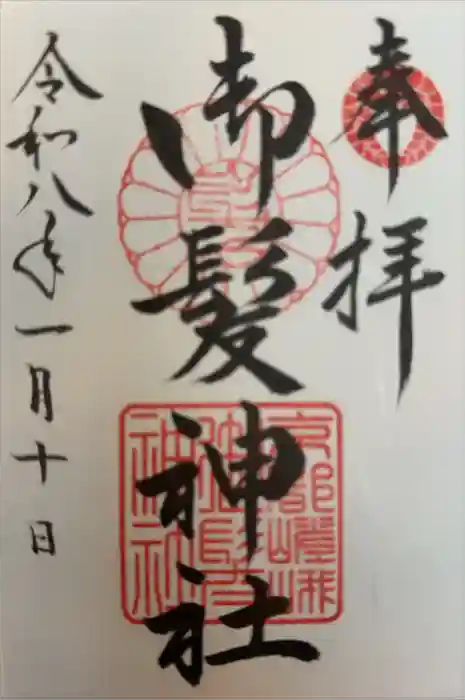 奉拝
御髪神社
京都嵯峨
御髪神社
令和八年一月十日